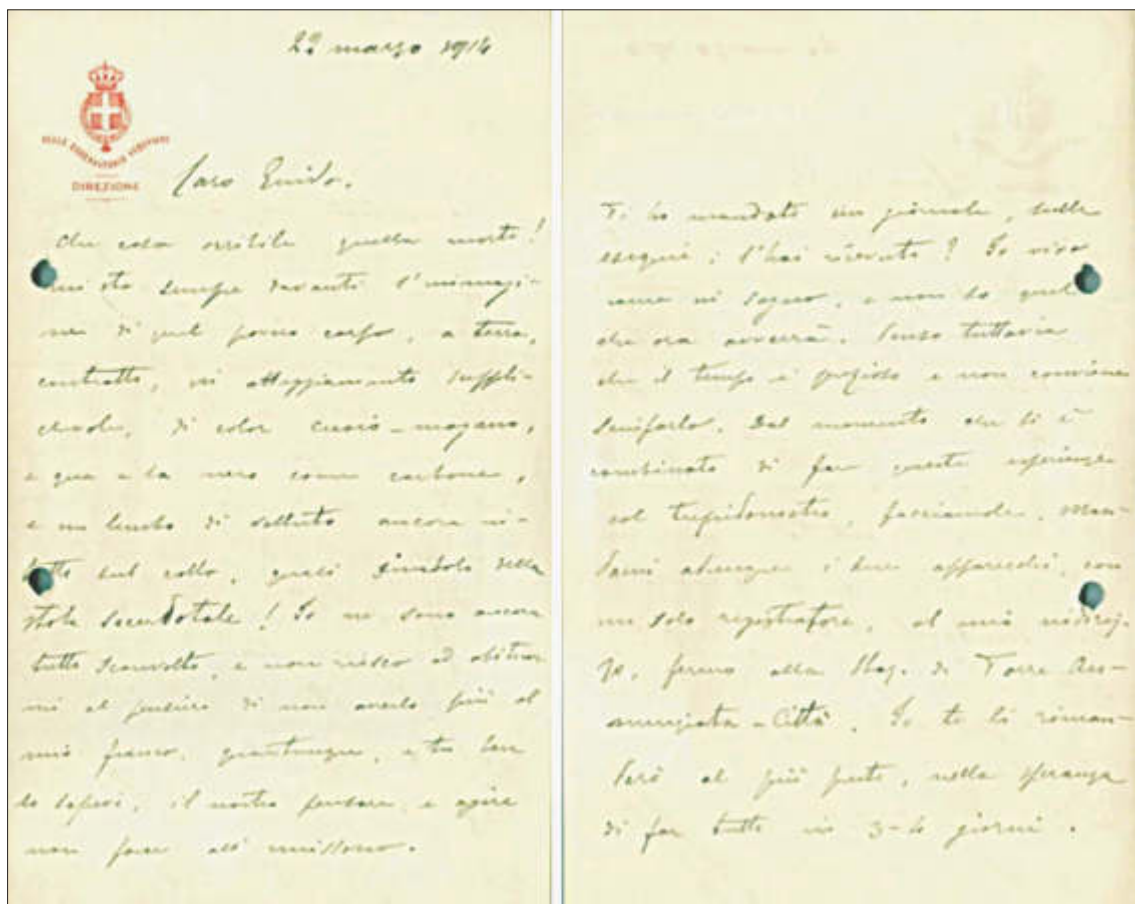 22 marzo 1914
REALE OSSERVATORIO VESUVIANO
DIREZIONE
Caro Guido.
Che cosa orribile quella morte!
mi sta sempre davanti l'immagi-
ne di quel povero corpo, a terra,
contratto, in atteggiamento suppli-
chevole, di color cuoio-mogano,
e qua e la nero come carbone,
e un lembo di velluto ancora
sul collo, quasi simbolo della
stola sacerdotale! Io ne sono ancora
tutto sconvolto, e non riesco ad abituar
mi al pensiero di non averlo più al
mio fianco, quantunque, e tu ben
lo sapevi, il nostro pensare e agire
non fosse all'unissono.
Ti ho mandato un giornale, sulle
esequie; l'hai ricevuto? Io vivo
come in sogno, e non so quel
che ora avverrà. Penso tuttavia
che il tempo è prezioso e non conviene
sciuparlo. Dal momento che si è
combinato di fare queste esperienze
col trepidometro, facciamole. Man-
dami adunque i due apparecchi, con
un solo registratore, al mio indiriz-
zo, fermo alla Staz. di Torre An-
nunziata-Città. Io te li riman-
derò al più presto, nella speranza
di far tutto in 3-4 giorni.